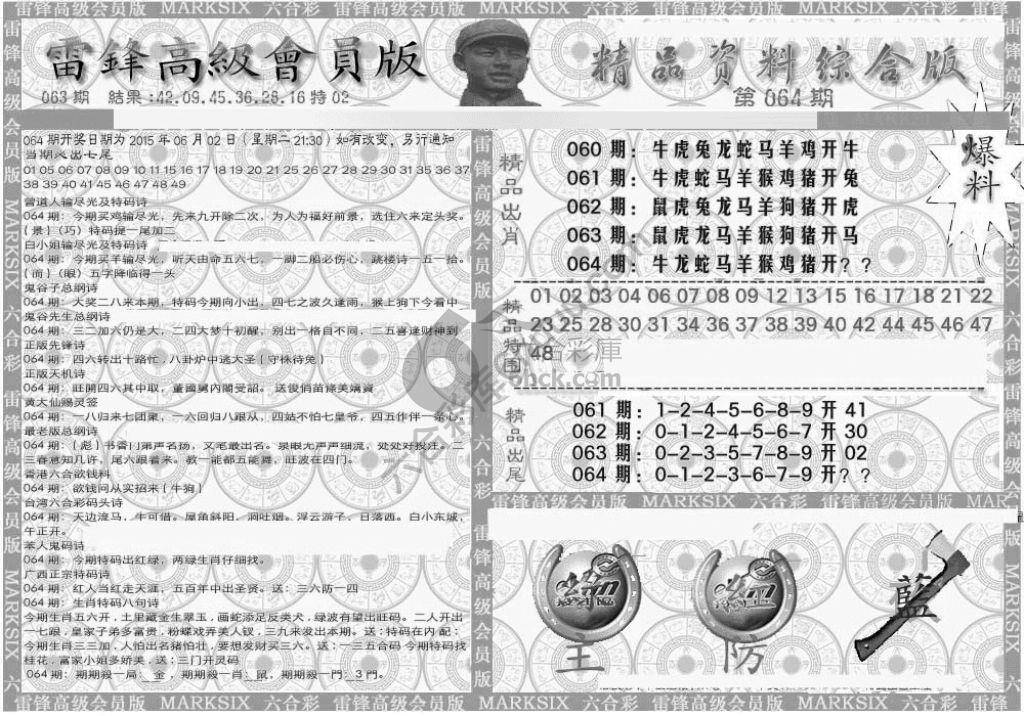 雷锋高级会员版 MARKSIX 六合彩 雷锋高级会员版 MARKSIX 六合彩 雷锋高级会员版 MARKSIX 六合彩 雷锋
雷鋒高級會員版
063期 結果:42.09.45.36.26.16特02
精品資料綜合版
第064期
064期开奖日期为2015年06月02日（星期二21:30）如有改变，另行通知
当期必出七尾
01 05 06 07 08 09 10 11 15 16 17 18 19 20 21 25 26 27 28 29 30 31 35 36 37
38 39 40 41 45 46 47 48 49
曾道人输尽光及特码诗
064期：今期买鸡输尽光，先来九开除二次，为人为福好前景，选住六来定头奖。
{景}（巧）特码提一尾加二
白小姐输尽光及特码诗
064期：今期买羊输尽光，听天由命五六七，一脚二船必伤心，跳楼诗一五一拾。
{而}（眼）五字降临得一头
鬼谷子总纲诗
064期：大奖二八来本期，特码今期向小出，四七之波久逢雨，猴上狗下今看中
鬼谷先生总纲诗
064期：三二加六仍是大，二四大梦十初醒，别出一格自不同，二五喜逢财神到
正版先锋诗
064期：四六转出十路忙，八卦炉中逃大圣{守株待兔}
正版天机诗
064期：旺開四六其中取，董國舅内閣受詔。送俊俏苗條美嬌資
黄大仙赐灵签
064期：一八归来七团聚，一六回归八跟从，四姑不怕七皇爷，四五作伴一条心。
最老版总纲诗
064期：{彪}书香门第声名扬，文笔最出名。泉眼无声声细流，处处好投注。二
三春意知几许，尾六跟着来。教一能都五能舞，旺波在四门。
香港六合欲钱料
064期：欲钱问从实招来{牛狗}
台湾六合彩码头诗
064期：天边渡马，牛可借。屋角斜阳，洞吐烟。浮云游子，日落西。白小东城，
午正开。
本人鬼码诗
064期：今期特码出红绿，两绿生肖仔细找。
广西正宗特码诗
064期：红人当红走天涯，五百年中出圣贤。送：三六防一四
064期：生肖特码八句诗
今期生肖五六开，土里藏金生翠玉，画蛇添足反类犬，绿波有望出旺码。二人开出
一七跟，皇家子弟多富贵，粉蝶戏弄美人钗，三九来发出本期。送：特码在内 配：
今期生肖三三加，人怕出名猪怕壮，要想发财买三六。送：一三五合码 今期特码找
桂花，富家小姐多娇美，送：三门开灵码
064期：期期殺一局：金，期期殺一肖：鼠，期期殺一門：3門。
精品出肖
060期：牛虎兔龙蛇马羊鸡开牛
061期：牛虎蛇马羊猴鸡猪开兔
062期：鼠虎兔龙马羊狗猪开虎
063期：鼠虎龙马羊猴狗猪开马
064期：牛龙蛇马羊猴鸡猪开？？
爆料
精品特围
01 02 03 04 06 07 08 09 12 13 15 16 17 18 21 22
23 25 28 30 31 34 36 37 38 39 40 42 44 45 46 47
48
精品出尾
061期：1-2-4-5-6-8-9开41
062期：0-1-2-4-5-6-7开30
063期：0-2-3-5-7-8-9开02
064期：0-1-2-3-6-7-9开？？
雷锋高级会员版 MARKSIX 六合彩 雷锋高级会员版 MARKSIX
主
防
藍
雷锋高级会员版 MARKSIX 六合彩 雷锋高级会员版 MARKSIX 六合彩 雷锋高级会员版 MARKSIX 六合彩 雷锋